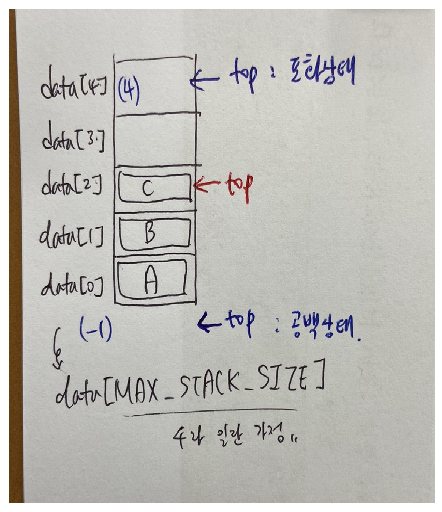 data[4] (4) ← top : 포화상태
data[3]
data[2] C ← top
data[1] B
data[0] A
(-1) ← top : 공백상태.
data[MAX_STACK_SIZE]
4라 일단 가정